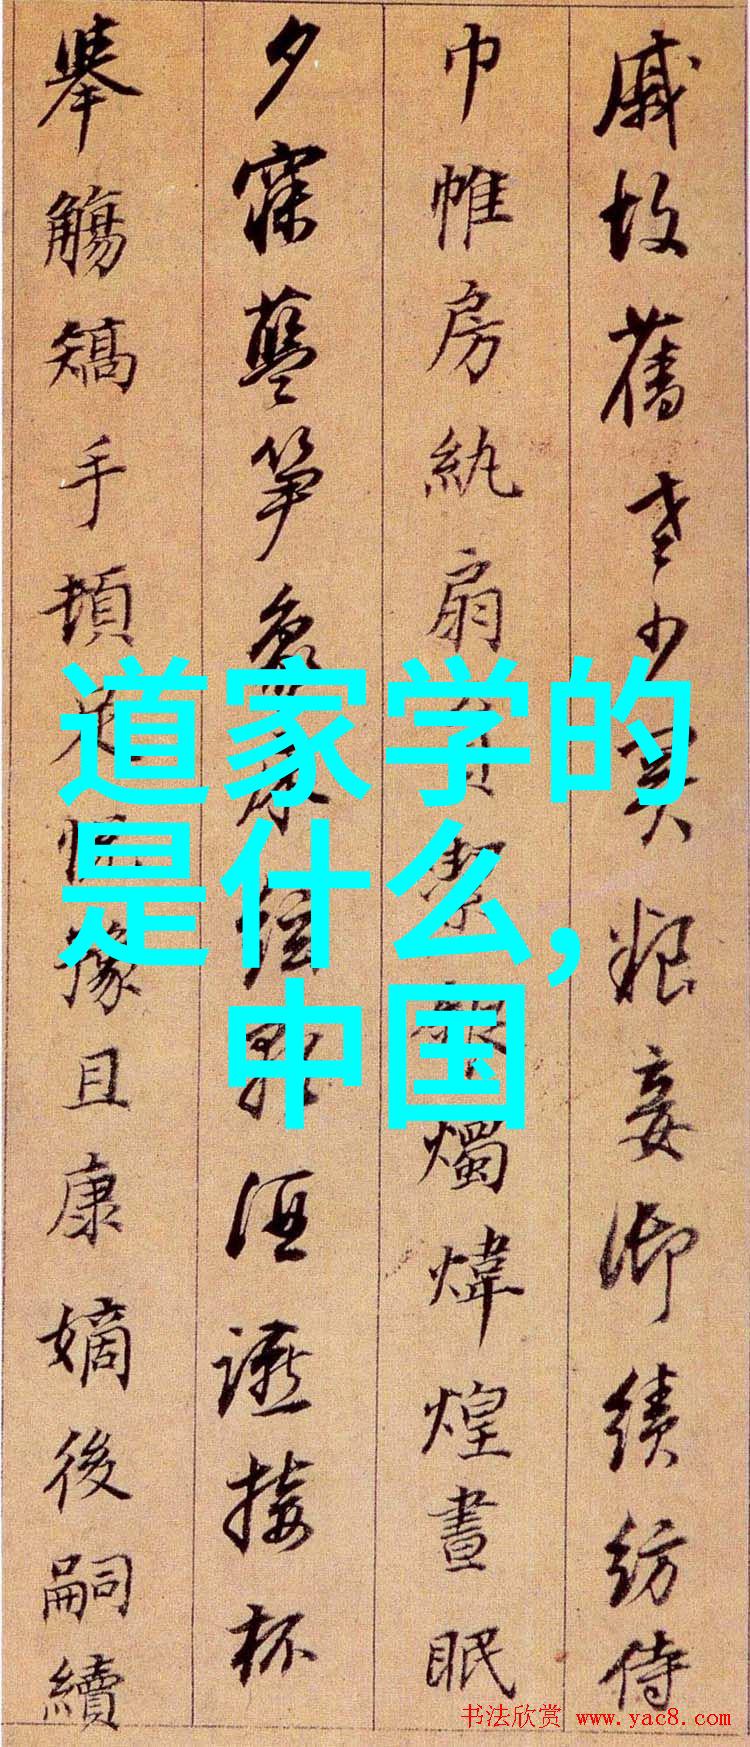 戚故舊老少異粮妾御績紡侍
巾帷房紈扇員絜銀燭煒煌晝眠
夕寐藍笋象床弦歌酒讌接杯
舉觴矯手頓足悅豫且康嫡後嗣續
道家学的
是什么,
中国
书法欣赏 www.yac8.com